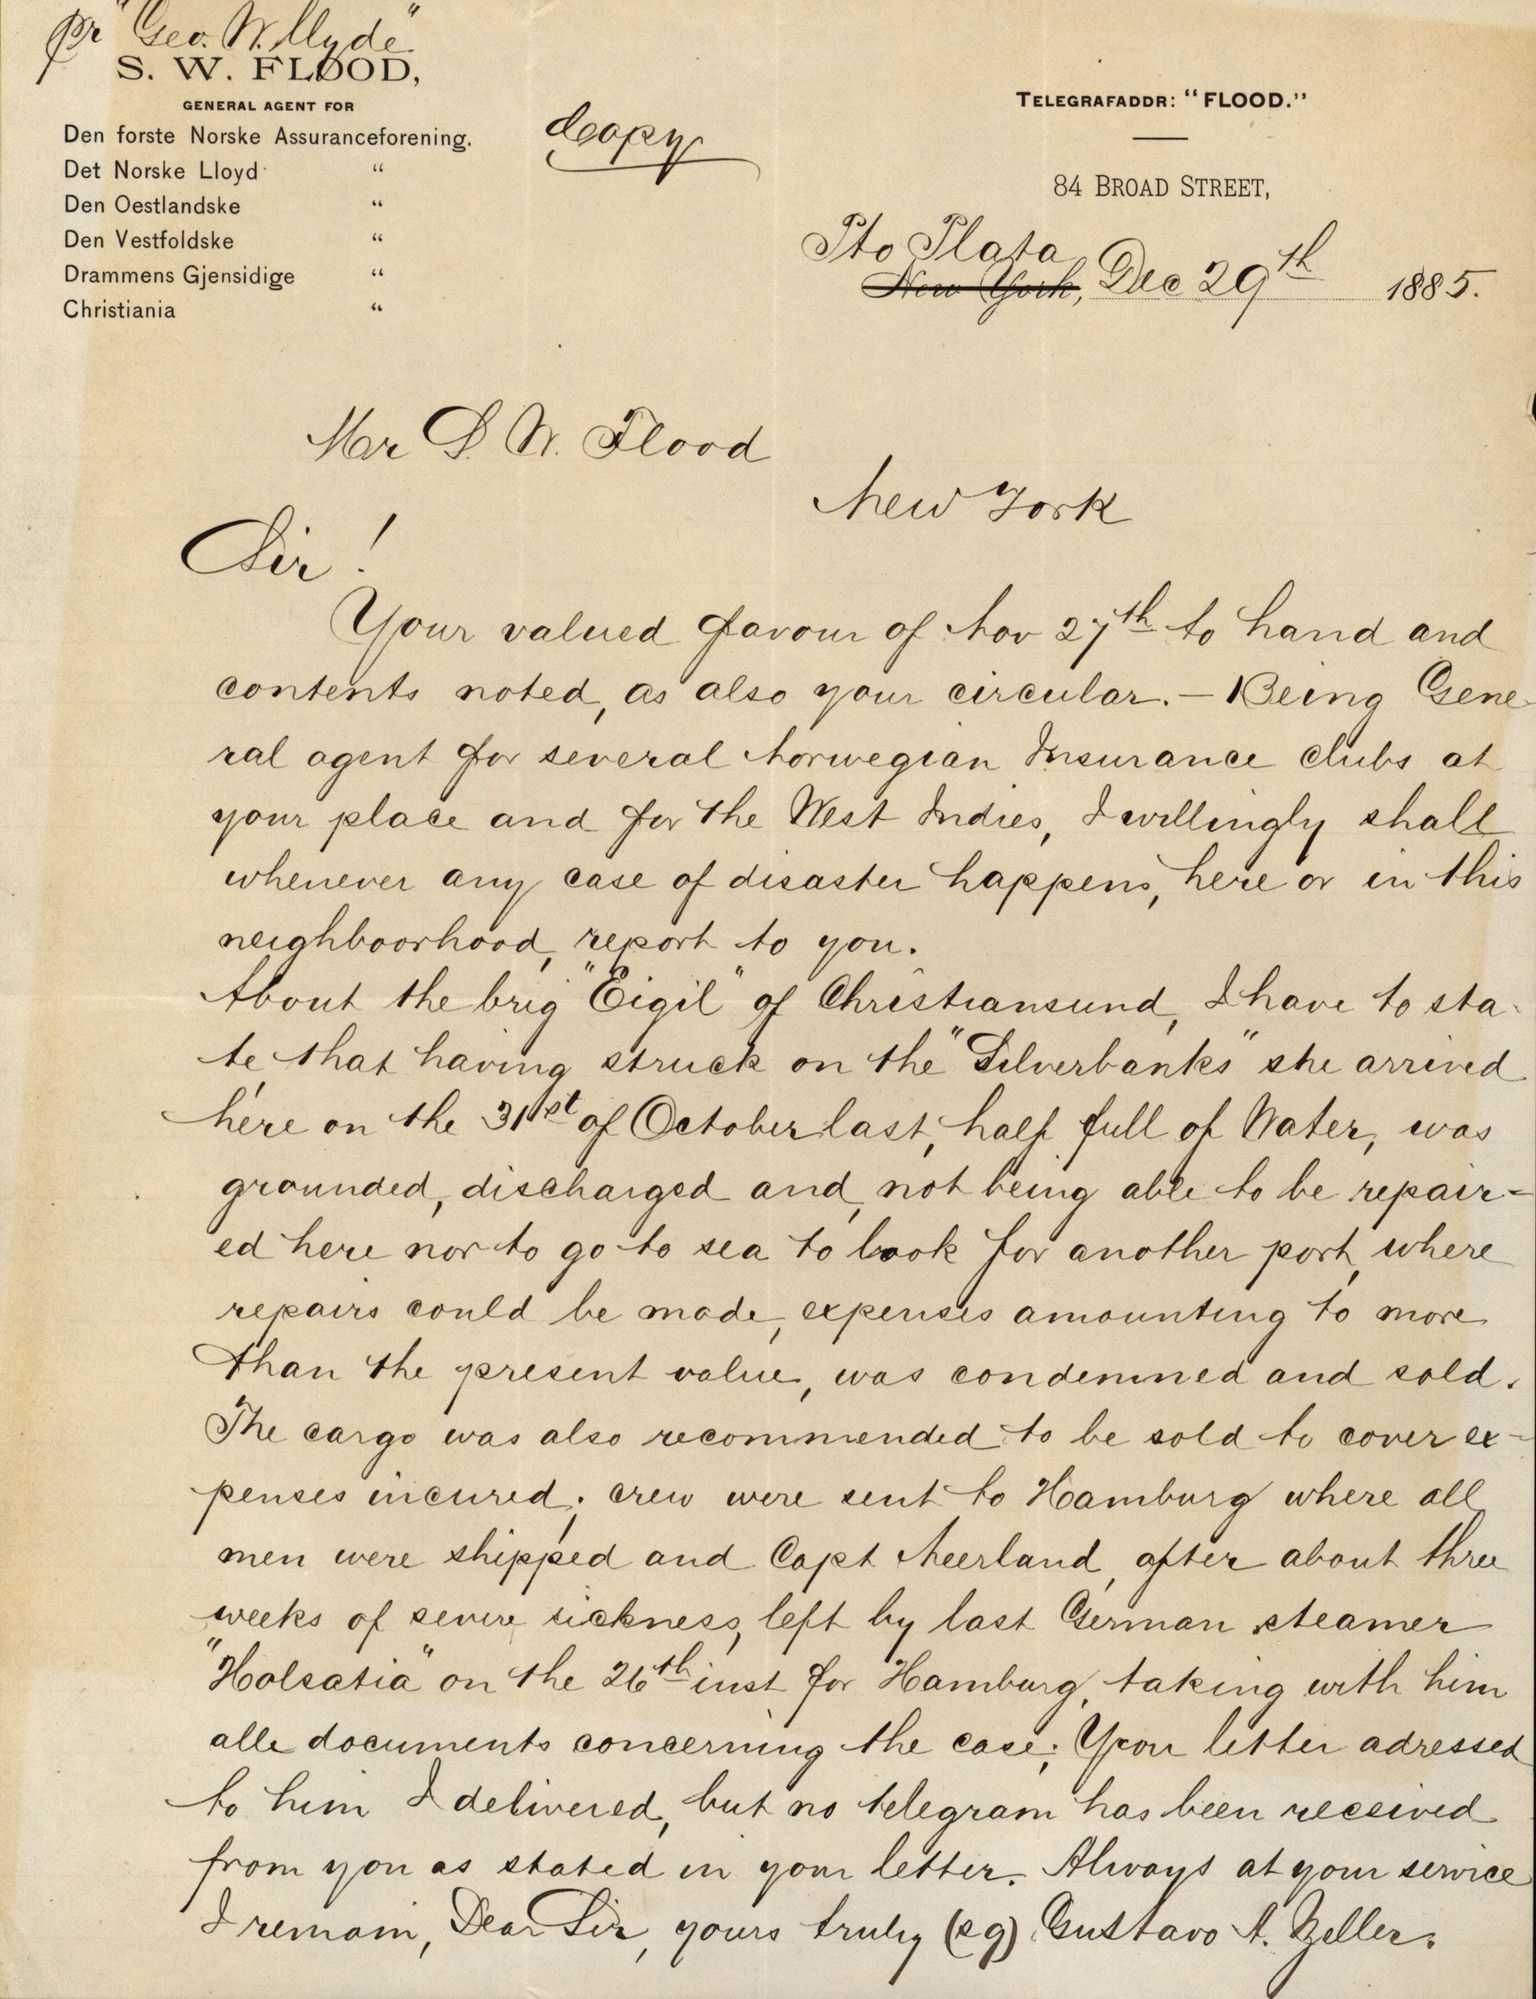 pr "Geo. W. Clyde"
S. W. FLOOD,
GENERAL AGENT FOR
Den forste Norske Assuranceforening.
Det Norske Lloyd "
Den Oestlandske "
Den Vestfoldske "
Drammens Gjensidige "
Christiania "
Copy
TELEGRAFADDR: "FLOOD."
84 BROAD STREET,
Pto Plata
New York, Dec 29th 1885.
Mr S. W. Flood
New York
Sir!
Your valued favour of Nov 27th to hand and
contents noted, as also your circular. — Being Gene
ral agent for several Norwegian Insurance clubs at
your place and for the West Indies, I willingly shall
whenever any case of disaster happens, here or in this
neighboorhood, report to you.
About the brig "Eigil" of Christiansund, I have to sta-
te, that having struck on the "Silverbanks" she arrived
here on the 31st of October last, half full of Water, was
grounded, discharged and, not being able to be repair=
ed here nor to go to sea to look for another port, where
repairs could be made, expenses amounting to more
than the present value, was condemned and sold.
The cargo was also recommended to be sold to cover ex-
penses incured; crew were sent to Hamburg where all
men were shipped and Capt Neerland, after about three
weeks of severe sickness, left by last German steamer
"Holsatia" on the 26th inst for Hamburg, taking with him
alle documents concerning the case; Your letter adressed
to him I delivered, but no telegram has been received
from you as stated in your letter. Always at your service
I remain, Dear Sir, yours truly (sg) Gustavo A. Zeller.